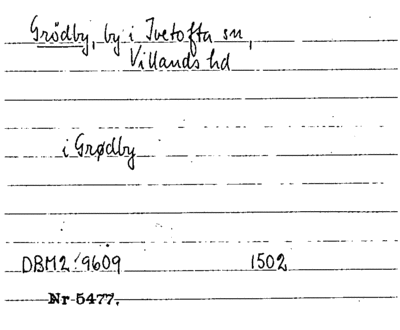 Grödby, by i Ivetofta sn,
Villands hd
i Grødby
DBM2:9609 1502
Nr 5477.